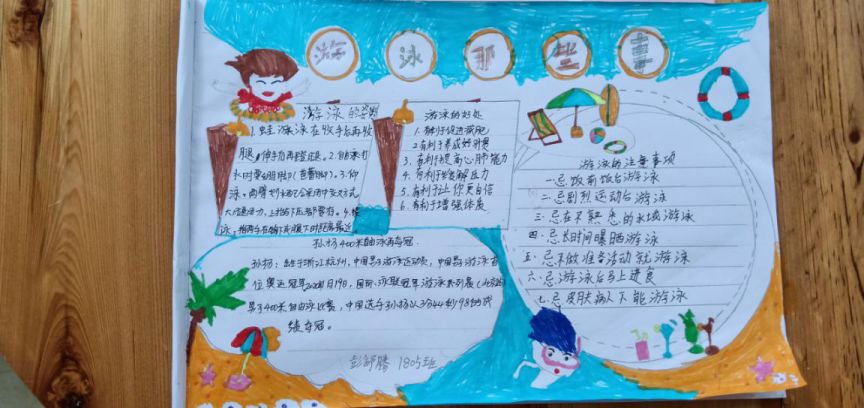 游泳那些事
游泳的姿势
1.蛙泳 泳在收手后再收
腿，伸手后再蹬腿。2.自由泳打
水时要绷脚
3.仰
泳。
4.蝶
泳
游泳的好处
1.有利于促进减肥
2.有利于养成好习惯
3.有利于提高心肺能力
4.有利于缓解压力
5.有利于让你更自信
6.有利于增强体质
游泳的注意事项
一.忌饭前饭后游泳
二.忌剧烈运动后游泳
三.忌在不熟悉的水域游泳
四.忌长时间曝晒游泳
五.忌不做准备活动就游泳
六.忌游泳后马上进食
七.忌皮肤病不能游泳
孙杨400米自泳再夺冠
孙杨：出生于浙江杭州，中国男子游泳运动员，中国男子游泳首
位奥运冠军 月19日，国际泳联冠军游泳系列赛
男子400米自由泳比赛，中国选手孙杨以3分44秒98的成
绩夺冠。
彭舒腾 1805班